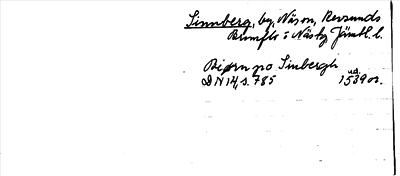 Sinnberg, by, Näson, Revsunds
Brunflo s Näsby Jämtl. l.
Biørn po Sinbergh
DN 14, s. 785 u.å. 1539 or.